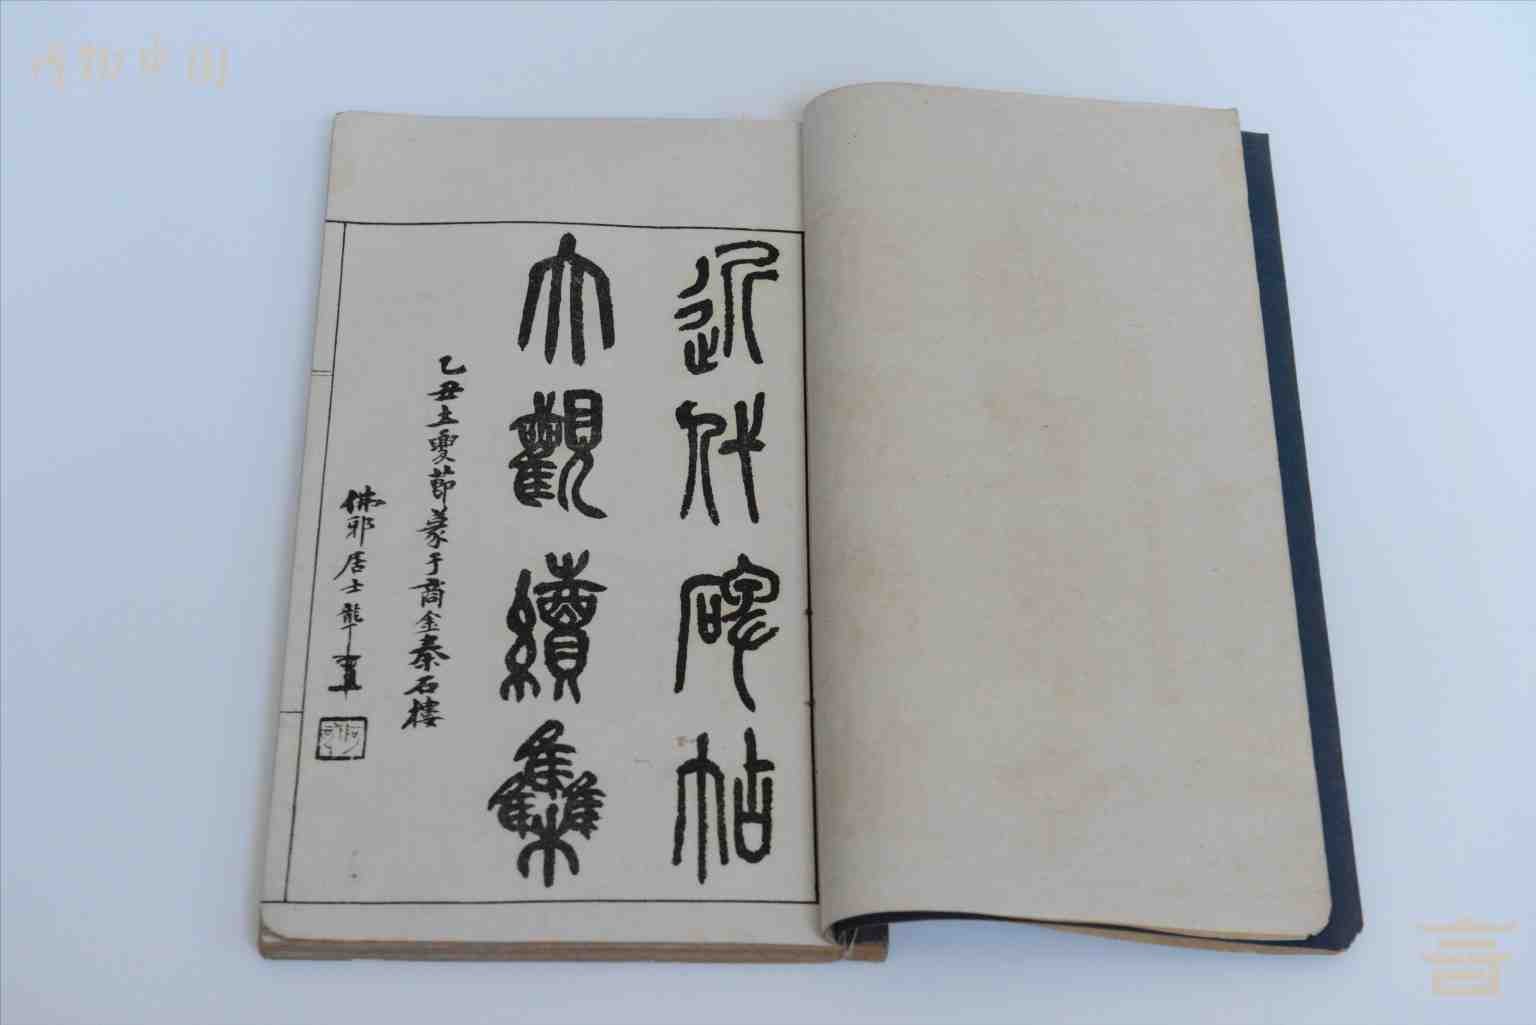 近代碑帖
大觀續集
乙丑夏節篆于商金秦石樓
佛邪居士
博物中国
言